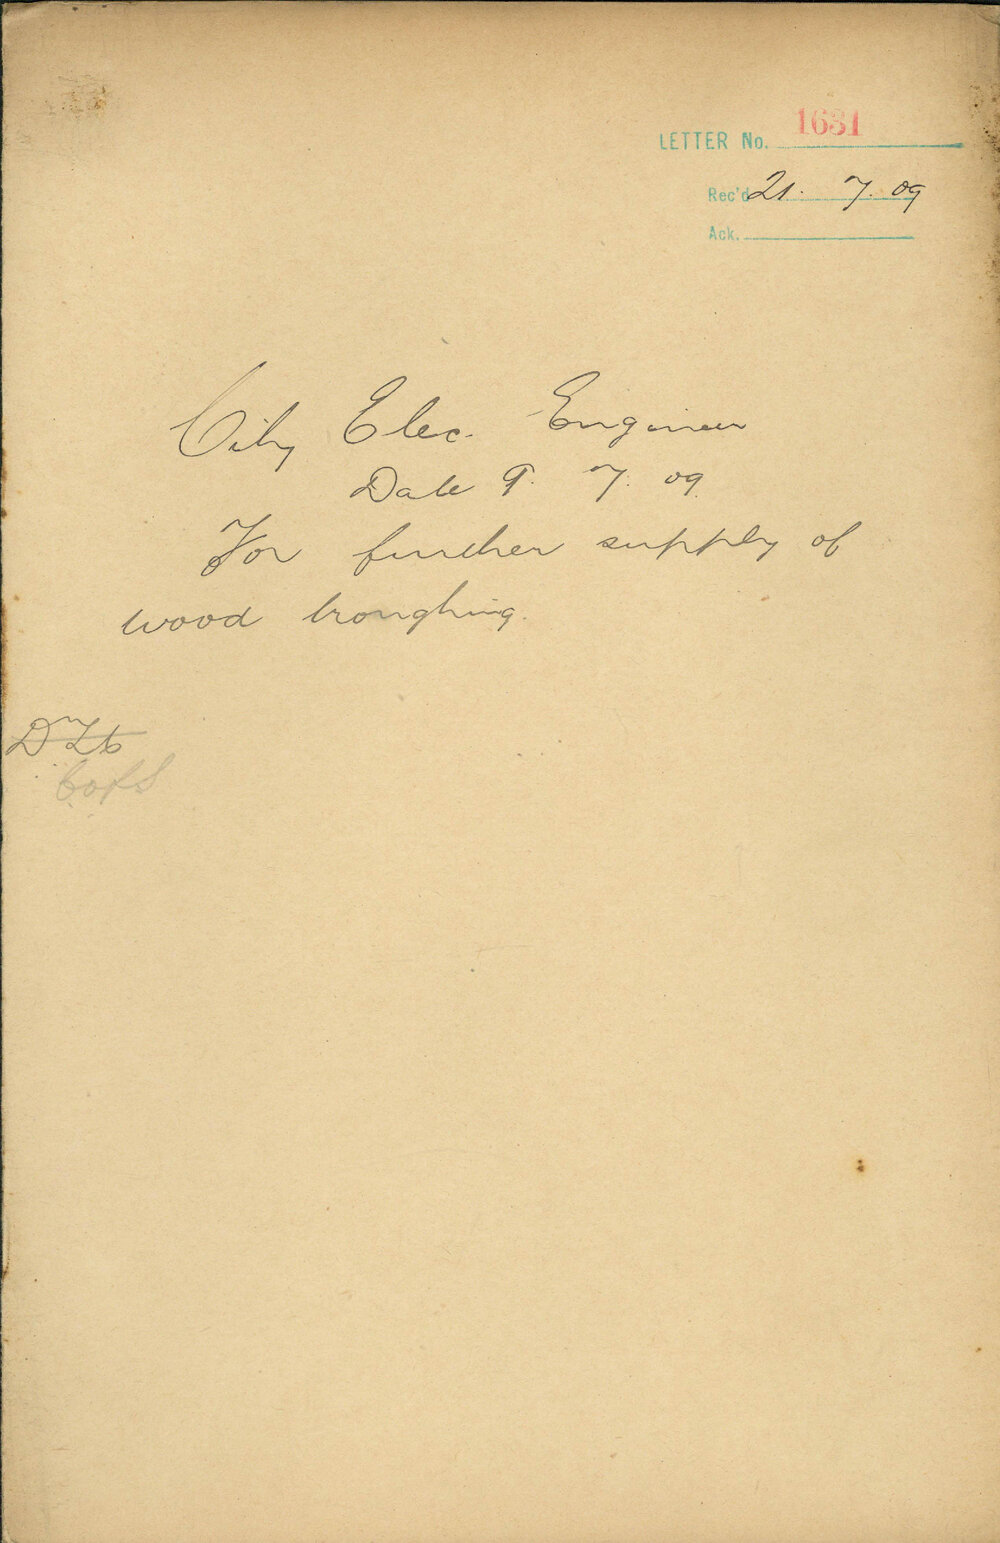 LETTER No. 1631
Rec'd 21. 7. 09
Ack.
City Elec. Engineer
Date 9. 7. 09
For further supply of
wood troughing.